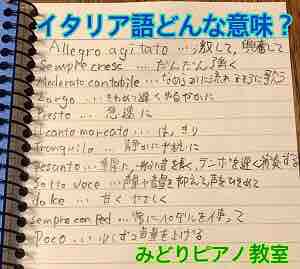 イタリア語どんな意味？
Allegro agitato …激して，興奮して
Sempre cresc … だんだん強く
Moderato cantabile … なめらかに流れるように歌う
Largo … きわめて遅くゆるやかに
Presto … 急速に
il canto marcato … はっきり
Tranquillo … 静かに平穏に
Pesanto … 重厚に,
Sotto voce … 音量を抑えて声をひそめて
dolce … 甘くやさしく
Sempre con Ped … 常にペダルを使って
Poco … 少しずつ音量を上げる
みどりピアノ教室